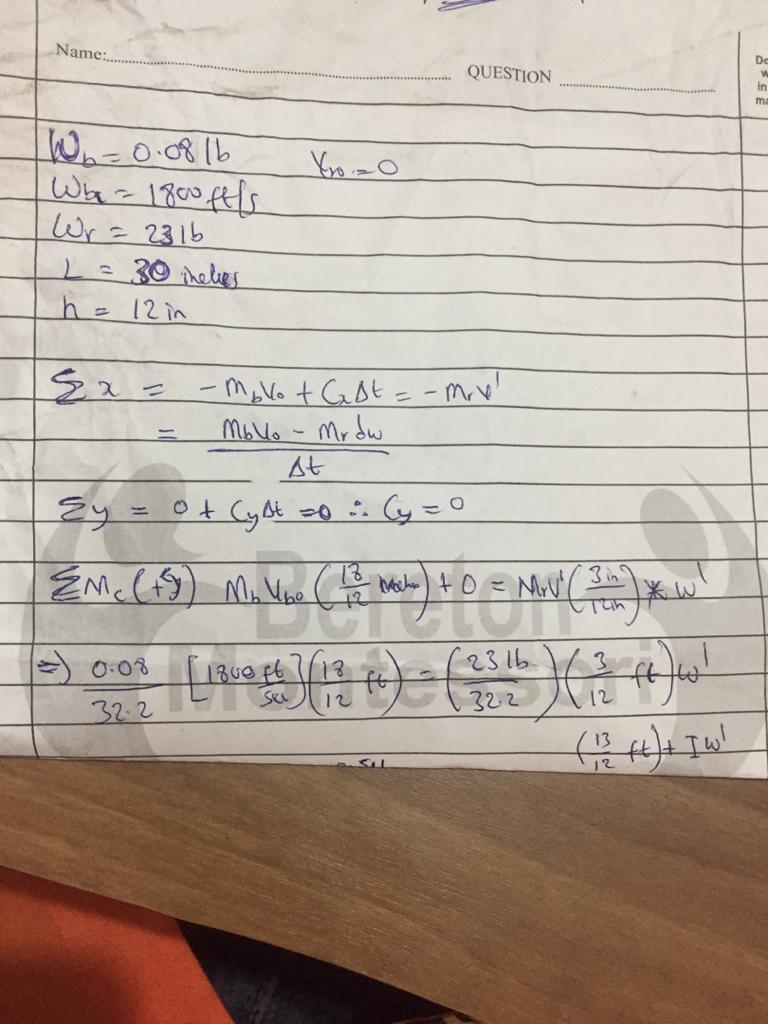 Name: QUESTION
Do
w
in
ma
W_b = 0.08 lb V_ro = 0
W_bx = 1800 ft/s
W_r = 23 lb
L = 30 inches
h = 12 in
Σx = -M_bV_o + C_xΔt = -M_rV'
= (M_bV_o - M_r dw) / Δt
Σy = 0 + C_yΔt = 0 ∴ C_y = 0
ΣM_c (+↺) M_bV_bo (13/12) + 0 = M_rV' (3in/12in) * w'
⇒) 0.08/32.2 [1800 ft/sec] (13/12 ft) = (23 lb/32.2) (3/12 ft) w'
(13/12 ft) + I w'
Bereton
Montessori